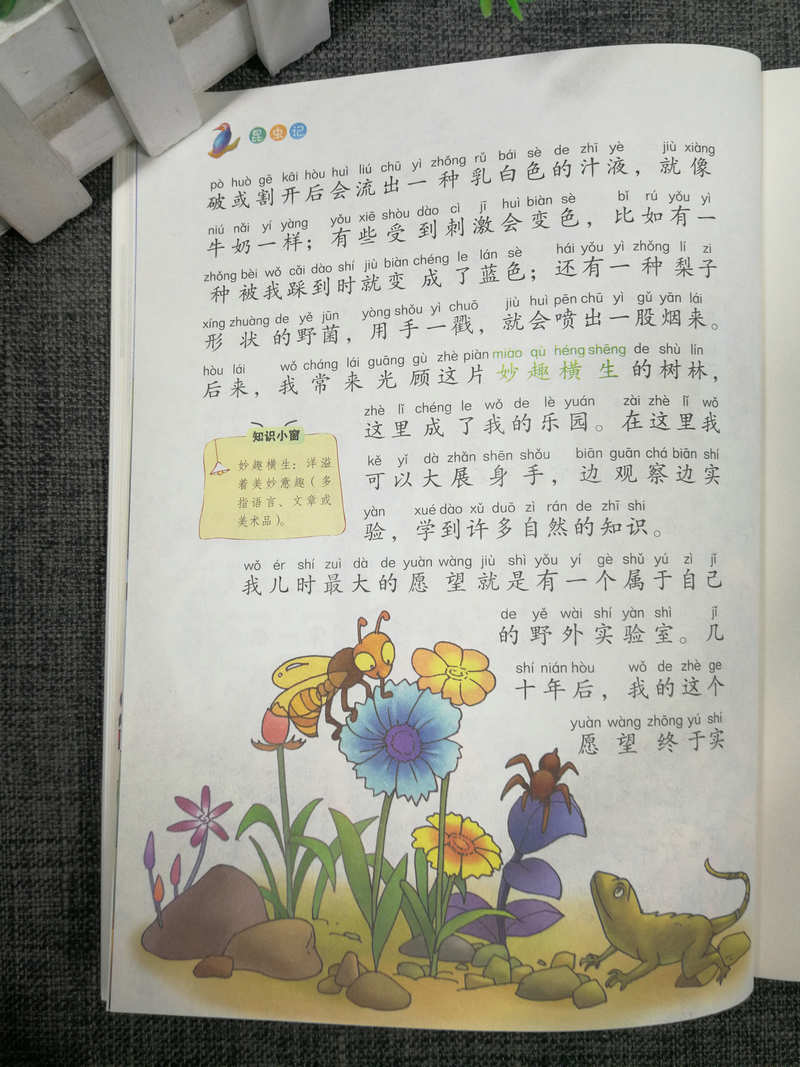 昆虫记
pò huò gē kāi hòu huì liú chū yì zhǒng rǔ bái sè de zhī yè jiù xiàng
破或割开后会流出一种乳白色的汁液，就像
niú nǎi yí yàng yǒu xiē shòu dào cì jī huì biàn sè bǐ rú yǒu yì
牛奶一样；有些受到刺激会变色，比如有一
zhǒng bèi wǒ cǎi dào shí jiù biàn chéng le lán sè hái yǒu yì zhǒng lí zi
种被我踩到时就变成了蓝色；还有一种梨子
xíng zhuàng de yě jūn yòng shǒu yì chuō jiù huì pēn chū yì gǔ yān lái
形状的野菌，用手一戳，就会喷出一股烟来。
hòu lái wǒ cháng lái guāng gù zhè piàn miào qù héng shēng de shù lín
后来，我常来光顾这片妙趣横生的树林，
zhè lǐ chéng le wǒ de lè yuán zài zhè lǐ wǒ
这里成了我的乐园。在这里我
kě yǐ dà zhǎn shēn shǒu biān guān chá biān shí
可以大展身手，边观察边实
yàn xué dào xǔ duō zì rán de zhī shi
验，学到许多自然的知识。
知识小窗
妙趣横生：洋溢
着美妙意趣（多
指语言、文章或
美术品）。
wǒ ér shí zuì dà de yuàn wàng jiù shì yǒu yí gè shǔ yú zì jǐ
我儿时最大的愿望就是有一个属于自己
de yě wài shí yàn shì jǐ
的野外实验室。几
shí nián hòu wǒ de zhè ge
十年后，我的这个
yuàn wàng zhōng yú shí
愿望终于实